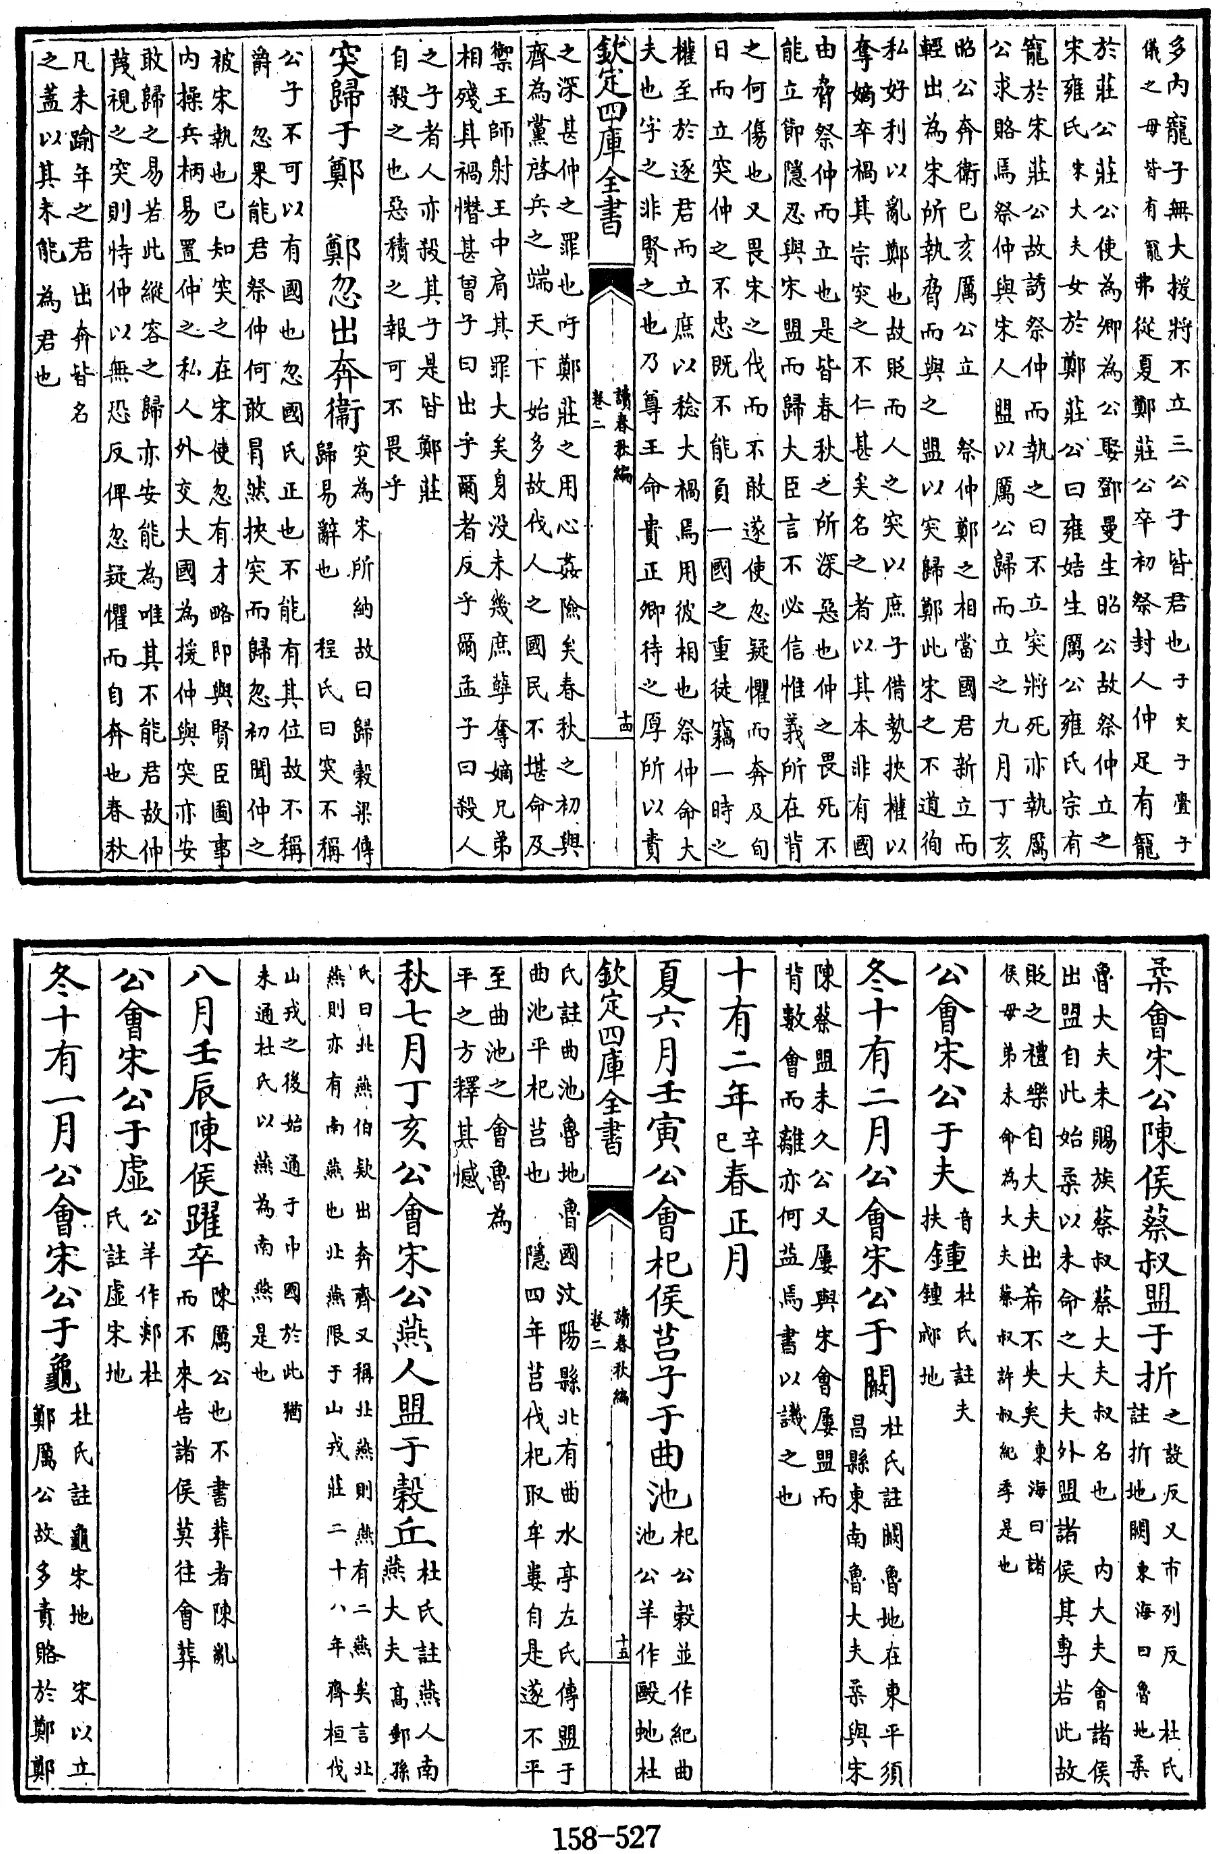 多内寵子無大援將不立三公子皆君也子突子亹子
儀之母皆有寵弗從夏鄭莊公卒初祭封人仲足有寵
於莊公莊公使為卿為公娶鄧曼生昭公故祭仲立之
宋雍氏宋大夫女於鄭莊公曰雍姞生厲公雍氏宗有
寵於宋莊公故誘祭仲而執之曰不立突將死亦執厲
公求賂焉祭仲與宋人盟以厲公歸而立之九月丁亥
昭公奔衛已亥厲公立 祭仲鄭之相當國君新立而
輕出為宋所執脅而與之盟以突歸鄭此宋之不道徇
私好利以亂鄭也故貶而人之突以庶子借勢挾權以
奪嫡卒禍其宗突之不仁甚矣名之者以其本非有國
由脅祭仲而立也是皆春秋之所深惡也仲之畏死不
能立節隱忍與宋盟而歸大臣言不必信惟義所在背
之何傷也又畏宋之伐而不敢遂使忽疑懼而奔及旬
日而立突仲之不忠既不能負一國之重徒竊一時之
權至於逐君而立庶以稔大禍焉用彼相也祭仲命大
夫也字之非賢之也乃尊王命貴正卿待之厚所以責
欽定四庫全書
讀春秋編
卷二
十四
之深甚仲之罪也吁鄭莊之用心姦險矣春秋之初與
齊為黨啓兵之端天下始多故伐人之國民不堪命及
禦王師射王中肩其罪大矣身没未幾庶孽奪嫡兄弟
相殘其禍憯甚曽子曰出乎爾者反乎爾孟子曰殺人
之子者人亦殺其子是皆鄭莊
自殺之也惡積之報可不畏乎
突歸于鄭 鄭忽出奔衛
突為宋所納故曰歸榖梁傳
歸易辭也 程氏曰突不稱
公子不可以有國也忽國氏正也不能有其位故不稱
爵 忽果能君祭仲何敢冐然挾突而歸忽初聞仲之
被宋執也已知突之在宋使忽有才略即與賢臣圖事
内操兵柄易置仲之私人外交大國為援仲與突亦安
敢歸之易若此縱容之歸亦安能為唯其不能君故仲
蔑視之突則恃仲以無恐反俾忽疑懼而自奔也春秋
凡未踰年之君出奔皆名
之葢以其未能為君也
柔會宋公陳侯蔡叔盟于折
之設反又市列反 杜氏
註折地闕東海曰魯地柔
魯大夫未賜族蔡叔蔡大夫叔名也 内大夫會諸侯
出盟自此始柔以未命之大夫外盟諸侯其専若此故
貶之禮樂自大夫出希不失矣東海曰諸
侯母弟未命為大夫蔡叔許叔紀季是也
公會宋公于夫
音
扶
鍾
杜氏註夫
鍾郕地
冬十有二月公會宋公于闞
杜氏註闞魯地在東平須
昌縣東南魯大夫柔與宋
陳蔡盟未久公又屢與宋會屢盟而
背數會而離亦何益焉書以譏之也
十有二年
辛
巳
春正月
夏六月壬寅公會杞侯莒子于曲池
杞公榖並作紀曲
池公羊作毆虵杜
欽定四庫全書
讀春秋編
卷二
十五
氏註曲池魯地魯國汶陽縣北有曲水亭左氏傳盟于
曲池平杞莒也 隱四年莒伐杞取牟婁自是遂不平
至曲池之會魯為
平之方釋其憾
秋七月丁亥公會宋公燕人盟于榖丘
杜氏註燕人南
燕大夫高郵孫
氏曰北燕伯欵出奔齊又稱北燕則燕有二燕矣言北
燕則亦有南燕也北燕限于山戎莊二十八年齊桓伐
山戎之後始通于中國於此猶
未通杜氏以燕為南燕是也
八月壬辰陳侯躍卒
陳厲公也不書葬者陳亂
而不來告諸侯莫往會葬
公會宋公于虛
公羊作郯杜
氏註虛宋地
冬十有一月公會宋公于龜
杜氏註龜宋地 宋以立
鄭厲公故多責賂於鄭鄭
158-527